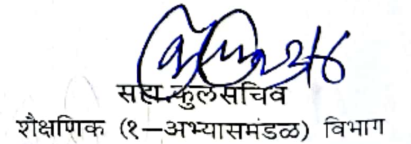 सहा.कुलसचिव
शैक्षणिक (१–अभ्यासमंडळ) विभाग